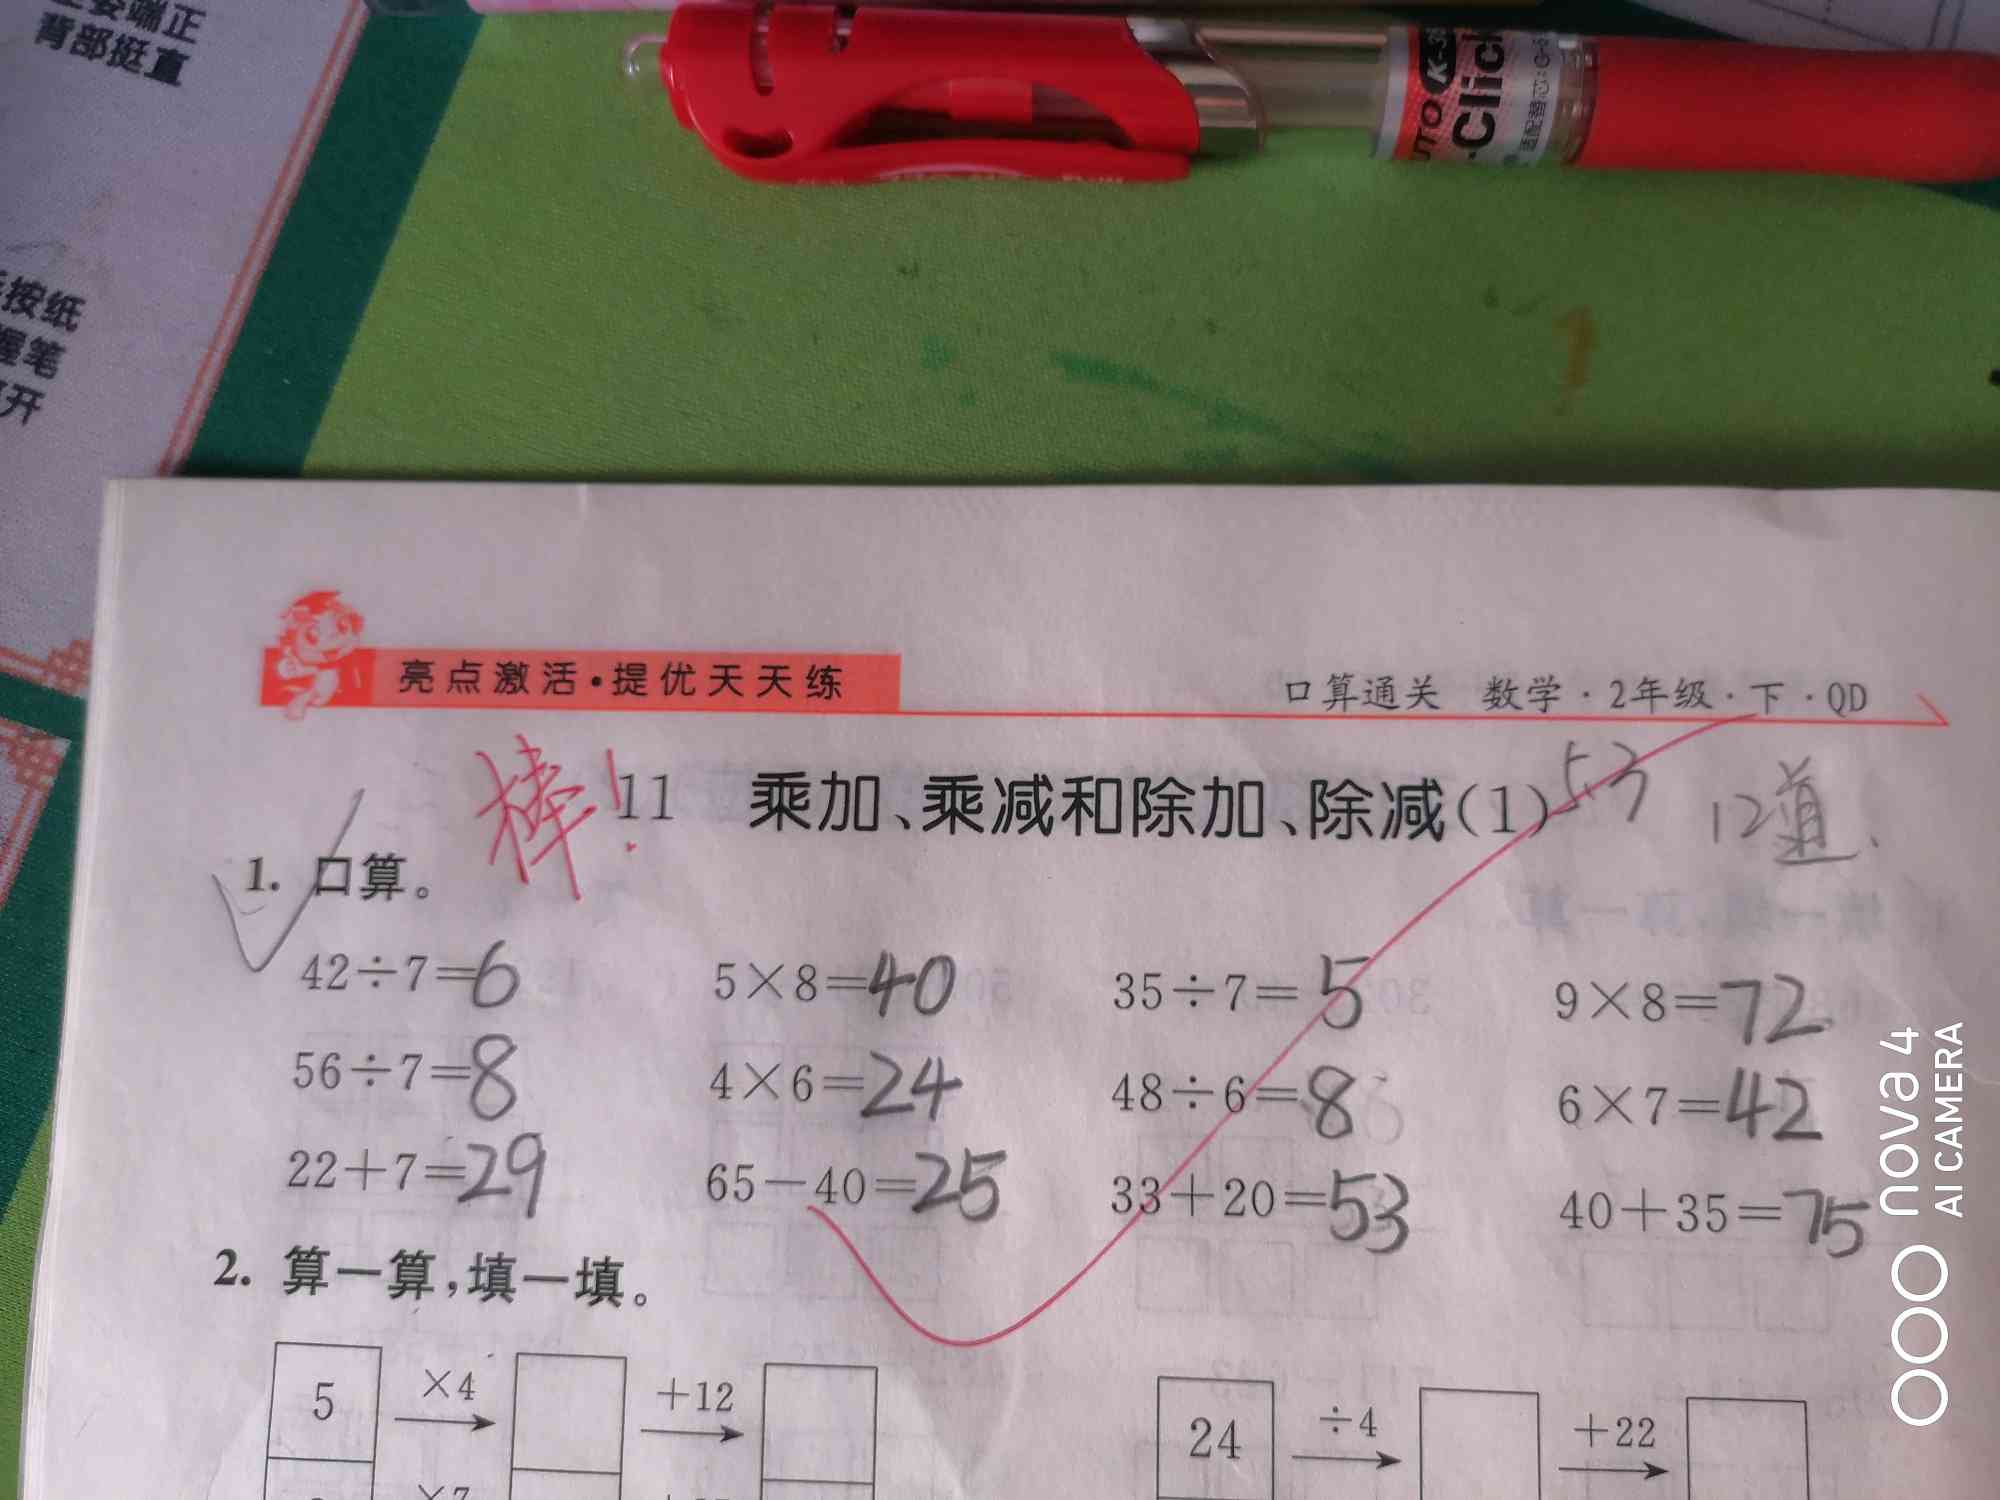 端正
背部挺直
按纸
握笔
开
K-35
Click
适配替芯:G-5
亮点激活·提优天天练
口算通关 数学·2年级·下·QD
棒!
11 乘加、乘减和除加、除减(1)
53 12道.
1. 口算。
42÷7=6 5×8=40 35÷7=5 9×8=72
56÷7=8 4×6=24 48÷6=8 6×7=42
22+7=29 65-40=25 33+20=53 40+35=75
2. 算一算,填一填。
5 ×4 +12 24 ÷4 +22
×7
nova 4
AI CAMERA